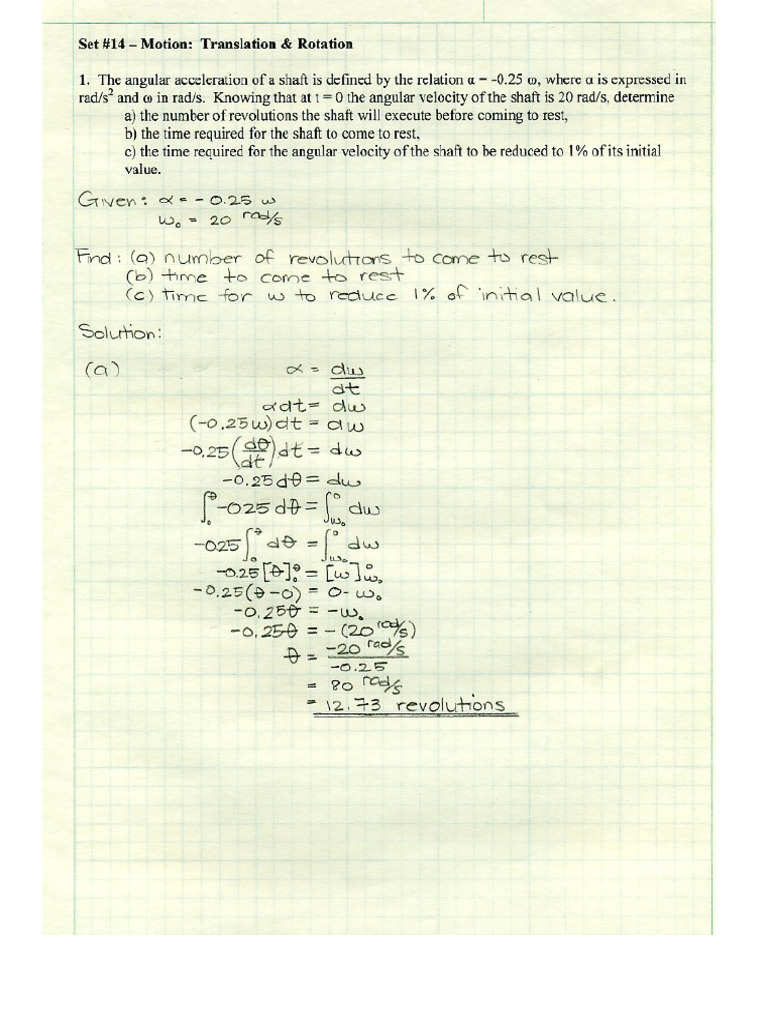 Set #14 – Motion: Translation & Rotation
1. The angular acceleration of a shaft is defined by the relation α = -0.25 ω, where α is expressed in
rad/s² and ω in rad/s. Knowing that at t = 0 the angular velocity of the shaft is 20 rad/s, determine
a) the number of revolutions the shaft will execute before coming to rest,
b) the time required for the shaft to come to rest,
c) the time required for the angular velocity of the shaft to be reduced to 1% of its initial
value.
Given: α = - 0.25 ω
ω₀ = 20 rad/s
Find: (a) number of revolutions to come to rest
(b) time to come to rest
(c) Time for ω to reduce 1% of initial value.
Solution:
(a) α = dω/dt
αdt = dω
(-0.25ω)dt = dω
-0.25(dθ/dt)dt = dω
-0.25dθ = dω
∫₀^θ -025 dθ = ∫_ω₀^0 dω
-025 ∫₀^θ dθ = ∫_ω₀^0 dω
-0.25[θ]₀^θ = [ω]_ω₀^0
-0.25(θ-0) = 0-ω₀
-0.25θ = -ω₀
-0.25θ = -(20 rad/s)
θ = -20 rad/s / -0.25
= 80 rad/s
= 12.73 revolutions